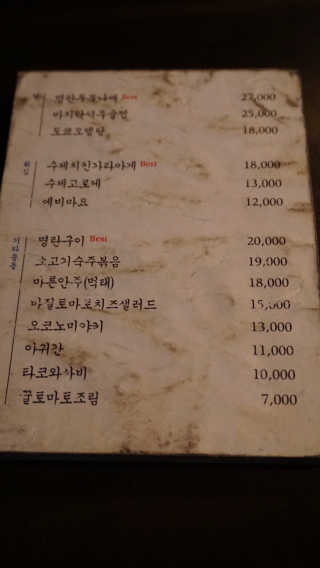 명란두부나베 Best 27,000
25,000
도쿄오뎅탕 18,000
튀김
수제치킨가라아게 Best 18,000
수제고로케 13,000
에비마요 12,000
명란구이 Best 20,000
소고기숙주볶음 19,000
마른안주(먹태) 18,000
바질토마토치즈샐러드 15,000
오코노미야키 13,000
아귀간 11,000
타코와사비 10,000
꿀토마토조림 7,000